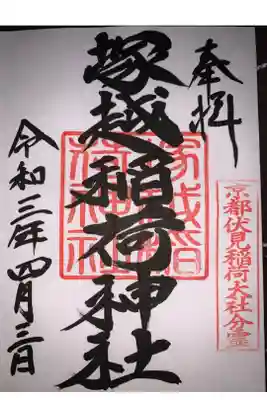 奉拝
京都伏見稲荷大社分霊
塚越稲荷神社
塚越稲荷神社
令和三年四月三日